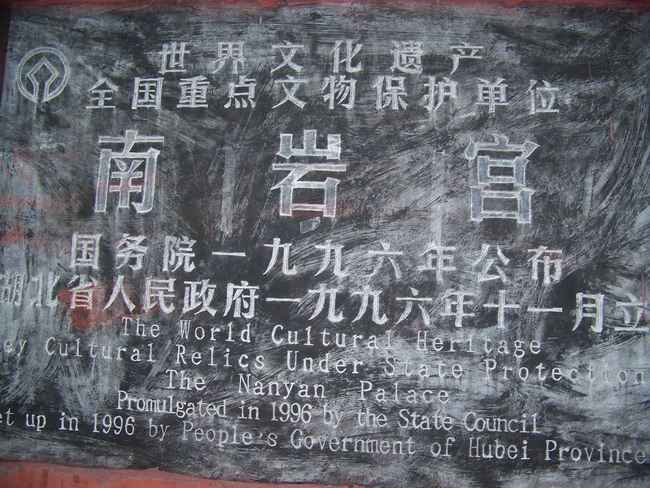 世界文化遗产
全国重点文物保护单位
南岩宫
国务院一九九六年公布
湖北省人民政府一九九六年十一月立
The World Cultural Heritage
ey Cultural Relics Under State Protection
The Nanyan Palace
Promulgated in 1996 by the State Council
et up in 1996 by People's Government of Hubei Province